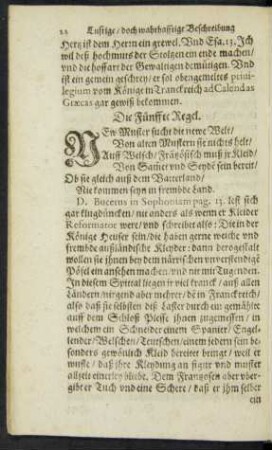 22 Lustige / doch wahrhafftige Beschreibung
Hertz ist dem Herrn ein grewel. Vnd Esa. 13. Jch
wil deß hochmuts der Stoltzen ein ende machen /
vnd die hoffart der Gewaltigen demütigen. Vnd
ist ein gemein geschrey / er sol obengemeltes privi-
legium vom Könige in Franckreich ad Calendas
Græcas gar gewiß bekommen.
Die Fünffte Regel.
NEw Muster sucht die newe Welt /
Von alten Mustern sie nichts helt /
Auff Welsch / Frätzösisch muß jr Kleid /
Von Samet vnd Seydē sein bereit /
Ob sie gleich auß dem Vatterland /
Nie kommen seyn in frembde Land.
D. Bucerus in Sophoniam pag. 13. lest sich
gar klug düncken / nit anders als wenn er Kleider
Reformator were / vnd schreibet also: Die in der
Könige Heuser sein / die haben gerne weiche vnd
frembde außländische Kleyder: dann derogestalt
wollen sie jhnen bey dem närrschen vnverstendigē
Pöfel ein ansehen machen / vnd nit mit Tugenden.
In diesem Spittal liegen jr viel kranck / auß allen
Ländern / nirgend aber mehrer / dē in Franckreich /
also daß sie selbsten diß Laster durch ein gemählte
auff dem Schloß Plesse jhnen zugemessen / in
welchem ein Schneider einem Spanier / Engel-
lender / Welschen / Teutschen / einem jedem sein be-
sonders gewönlich Kleid bereitet bringt / weil er
wuste / daß jhre Kleydung an figur vnd muster
allzeit einerley bliebe. Dem Frantzosen aber vber-
gibt er Tuch vnd eine Schere / daß er jhm selber
ein